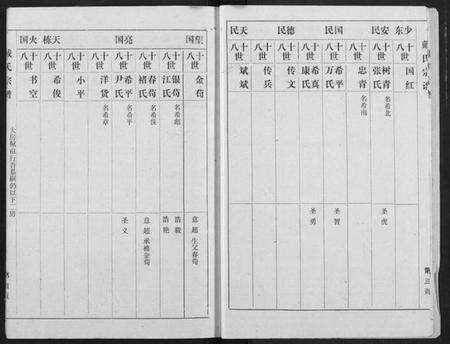 戴氏宗谱
第三页
少东
十八世
国红
安民
十八世
树青
张氏
名希北
圣虎
十八世
忠青
名希南
国民
十八世
希平
万氏
圣智
十八世
希真
康氏
圣勇
德民
十八世
传文
十八世
传兵
天民
十八世
斌斌
望国
十八世
金荀
意超
生父春荀
十八世
银荀
江氏
名希彪
浩毅
浩艳
亮国
十八世
春荀
褚氏
意超
承祧金荀
十八世
希平
尹氏
名希平
圣义
十八世
洋货
名希章
天栋
十八世
小平
十八世
希俊
火国
十八世
书空
戴氏宗谱
以下二房
第四页